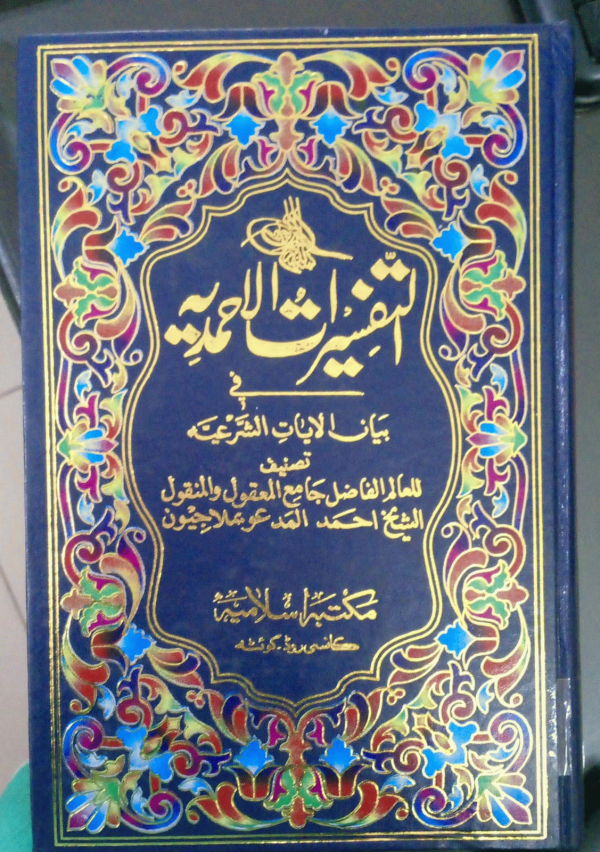 التفسيرات الاحمديه
في
بيان الايات الشرعيه
تصنيف
للعالم الفاضل جامع المعقول والمنقول
الشيخ احمد المدعو بملاجيون
مكتبہ اسلامیہ
کانسی روڈ۔ کوئٹہ